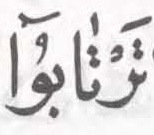 تَرْتَابُوٓا